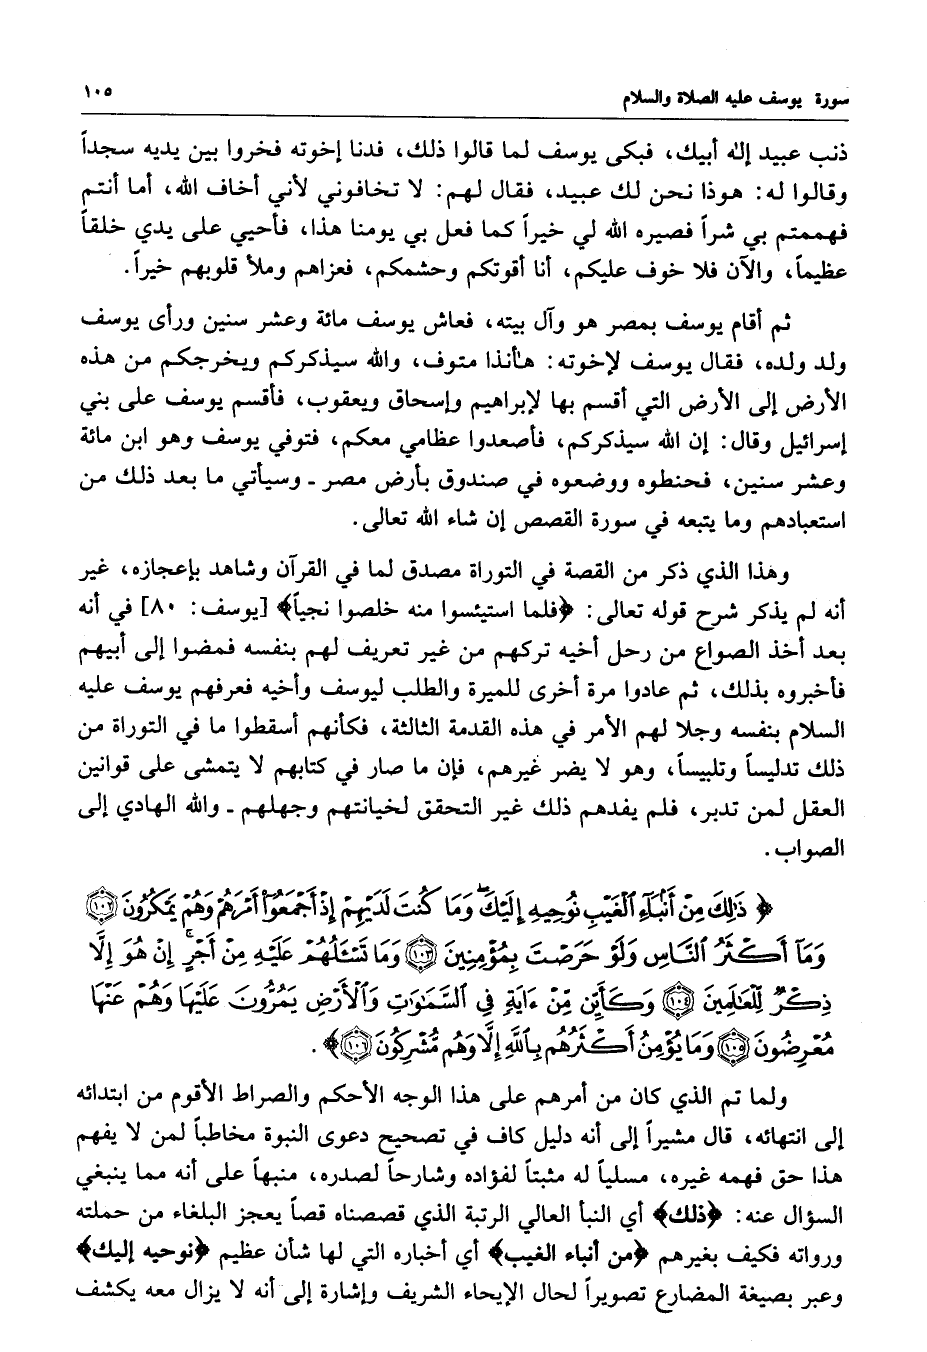 سورة يوسف عليه الصلاة والسلام ١٠٥
ذنب عبيد إله أبيك، فبكى يوسف لما قالوا ذلك، فدنا إخوته فخروا بين يديه سجداً
وقالوا له: هوذا نحن لك عبيد، فقال لهم: لا تخافوني لأني أخاف الله، أما أنتم
فهممتم بي شراً فصيره الله لي خيراً كما فعل بي يومنا هذا، فأحيي على يدي خلقاً
عظيماً، والآن فلا خوف عليكم، أنا أقوتكم وحشمكم، فعزاهم وملأ قلوبهم خيراً.
ثم أقام يوسف بمصر هو وآل بيته، فعاش يوسف مائة وعشر سنين ورأى يوسف
ولد ولده، فقال يوسف لإخوته: هأنذا متوف، والله سيذكركم ويخرجكم من هذه
الأرض إلى الأرض التي أقسم بها لإبراهيم وإسحاق ويعقوب، فأقسم يوسف على بني
إسرائيل وقال: إن الله سيذكركم، فأصعدوا عظامي معكم، فتوفي يوسف وهو ابن مائة
وعشر سنين، فحنطوه ووضعوه في صندوق بأرض مصر ـ وسيأتي ما بعد ذلك من
استعبادهم وما يتبعه في سورة القصص إن شاء الله تعالى.
وهذا الذي ذكر من القصة في التوراة مصدق لما في القرآن وشاهد بإعجازه، غير
أنه لم يذكر شرح قوله تعالى: ﴿فلما استيئسوا منه خلصوا نجياً﴾ [يوسف: ٨٠] في أنه
بعد أخذ الصواع من رحل أخيه تركهم من غير تعريف لهم بنفسه فمضوا إلى أبيهم
فأخبروه بذلك، ثم عادوا مرة أخرى للميرة والطلب ليوسف وأخيه فعرفهم يوسف عليه
السلام بنفسه وجلا لهم الأمر في هذه القدمة الثالثة، فكأنهم أسقطوا ما في التوراة من
ذلك تدليساً وتلبيساً، وهو لا يضر غيرهم، فإن ما صار في كتابهم لا يتمشى على قوانين
العقل لمن تدبر، فلم يفدهم ذلك غير التحقق لخيانتهم وجهلهم ـ والله الهادي إلى
الصواب.
﴿ ذَٰلِكَ مِنْ أَنۢبَآءِ ٱلْغَيْبِ نُوحِيهِ إِلَيْكَ ۖ وَمَا كُنتَ لَدَيْهِمْ إِذْ أَجْمَعُوٓا۟ أَمْرَهُمْ وَهُمْ يَمْكُرُونَ ١٠٢
وَمَآ أَكْثَرُ ٱلنَّاسِ وَلَوْ حَرَصْتَ بِمُؤْمِنِينَ ١٠٣ وَمَا تَسْـَٔلُهُمْ عَلَيْهِ مِنْ أَجْرٍ ۚ إِنْ هُوَ إِلَّا
ذِكْرٌ لِّلْعَـٰلَمِينَ ١٠٤ وَكَأَيِّن مِّنْ ءَايَةٍ فِى ٱلسَّمَـٰوَٰتِ وَٱلْأَرْضِ يَمُرُّونَ عَلَيْهَا وَهُمْ عَنْهَا
مُعْرِضُونَ ١٠٥ وَمَا يُؤْمِنُ أَكْثَرُهُم بِٱللَّهِ إِلَّا وَهُم مُّشْرِكُونَ ١٠٦ ﴾.
ولما تم الذي كان من أمرهم على هذا الوجه الأحكم والصراط الأقوم من ابتدائه
إلى انتهائه، قال مشيراً إلى أنه دليل كاف في تصحيح دعوى النبوة مخاطباً لمن لا يفهم
هذا حق فهمه غيره، مسلياً له مثبتاً لفؤاده وشارحاً لصدره، منبهاً على أنه مما ينبغي
السؤال عنه: ﴿ذلك﴾ أي النبأ العالي الرتبة الذي قصصناه قصاً يعجز البلغاء من حملته
ورواته فكيف بغيرهم ﴿من أنباء الغيب﴾ أي أخباره التي لها شأن عظيم ﴿نوحيه إليك﴾
وعبر بصيغة المضارع تصويراً لحال الإيحاء الشريف وإشارة إلى أنه لا يزال معه يكشف